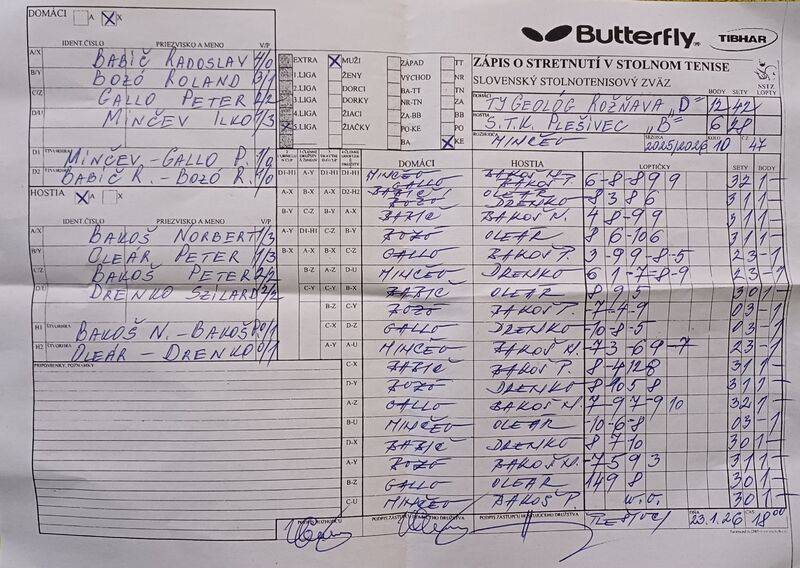 DOMÁCI A X
Butterfly
TIBHAR
IDENT.ČÍSLO PRIEZVISKO A MENO V/P
A/X BABIČ RADOSLAV 4/0
B/Y BOZÓ ROLAND 3/1
C/Z GALLO PETER 2/2
D/U MINČEV ILKO 1/3
D1 MINČEV - GALLO P. 1/0
D2 BABIČ R. - BOZÓ R. 1/0
HOSTIA A X
IDENT.ČÍSLO PRIEZVISKO A MENO V/P
A/X BAKOŠ NORBERT 1/3
B/Y OLEÁR PETER 1/3
C/Z BAKOŠ PETER 2/2
D/U DRENKO SZILARD 2/2
H1 ŠTVORHRA BAKOŠ N. - BAKOŠ P. 0/1
H2 ŠTVORHRA OLEÁR - DRENKO 0/1
PRIPOMIENKY, POZNÁMKY
EXTRA MUŽI ZÁPAD TT
1.LIGA ŽENY VÝCHOD NR
2.LIGA DORCI BA-TT TN
3.LIGA DORKY NR-TN ZA
4.LIGA ŽIACI ZA-BB BB
5.LIGA ŽIAČKY PO-KE PO
BA KE
ZÁPIS O STRETNUTÍ V STOLNOM TENISE
SLOVENSKÝ STOLNOTENISOVÝ ZVÄZ
NSTZ
LOPTY
DOMÁCI BODY SETY
TJ GEOLÓG ROŽŇAVA "D" 12 42
HOSTIA
S.T.K. PLEŠIVEC "B" 6 28
ROZHODCA SEZÓNA KOLO Č.
MINČEV 2025/2026 10 47
DOMÁCI HOSTIA LOPTIČKY SETY BODY
D1-H1 MINČEV GALLO BAKOŠ N. BAKOŠ P. 6 -8 -8 9 9 3 2 1 -
D2-H2 BABIČ BOZÓ OLEÁR DRENKO 8 3 8 6 3 1 1 -
A-X BABIČ BAKOŠ N. 4 8 -9 9 3 1 1 -
B-Y BOZÓ OLEÁR 8 6 -10 6 3 1 1 -
C-Z GALLO BAKOŠ P. 3 -9 9 -8 -5 2 3 - 1
D-U MINČEV DRENKO 6 1 -7 -8 -9 2 3 - 1
A-Y BABIČ OLEÁR 8 9 5 3 0 1 -
B-Z BOZÓ BAKOŠ P. -7 -4 -9 0 3 - 1
C-U GALLO DRENKO -10 -8 -5 0 3 - 1
D-X MINČEV BAKOŠ N. -7 3 -6 9 -7 2 3 - 1
C-X BABIČ BAKOŠ P. 8 -4 12 8 3 1 1 -
D-Y BOZÓ DRENKO 8 10 5 8 3 1 1 -
A-Z GALLO BAKOŠ N. 7 -9 7 -9 10 3 2 1 -
B-U MINČEV OLEÁR -10 -6 -8 0 3 - 1
D-X BABIČ DRENKO 8 7 10 3 0 1 -
A-Y BOZÓ BAKOŠ N. -7 5 9 3 3 1 1 -
B-Z GALLO OLEÁR 14 9 8 3 0 1 -
C-U MINČEV BAKOŠ P. w.o. 3 0 1 -
PODPIS ROZHODCU
PODPIS ZÁSTUPCU DOMÁCEHO DRUŽSTVA
PODPIS ZÁSTUPCU HOSŤUJÚCEHO DRUŽSTVA
DŇA 23.1.26
ČAS 18 00